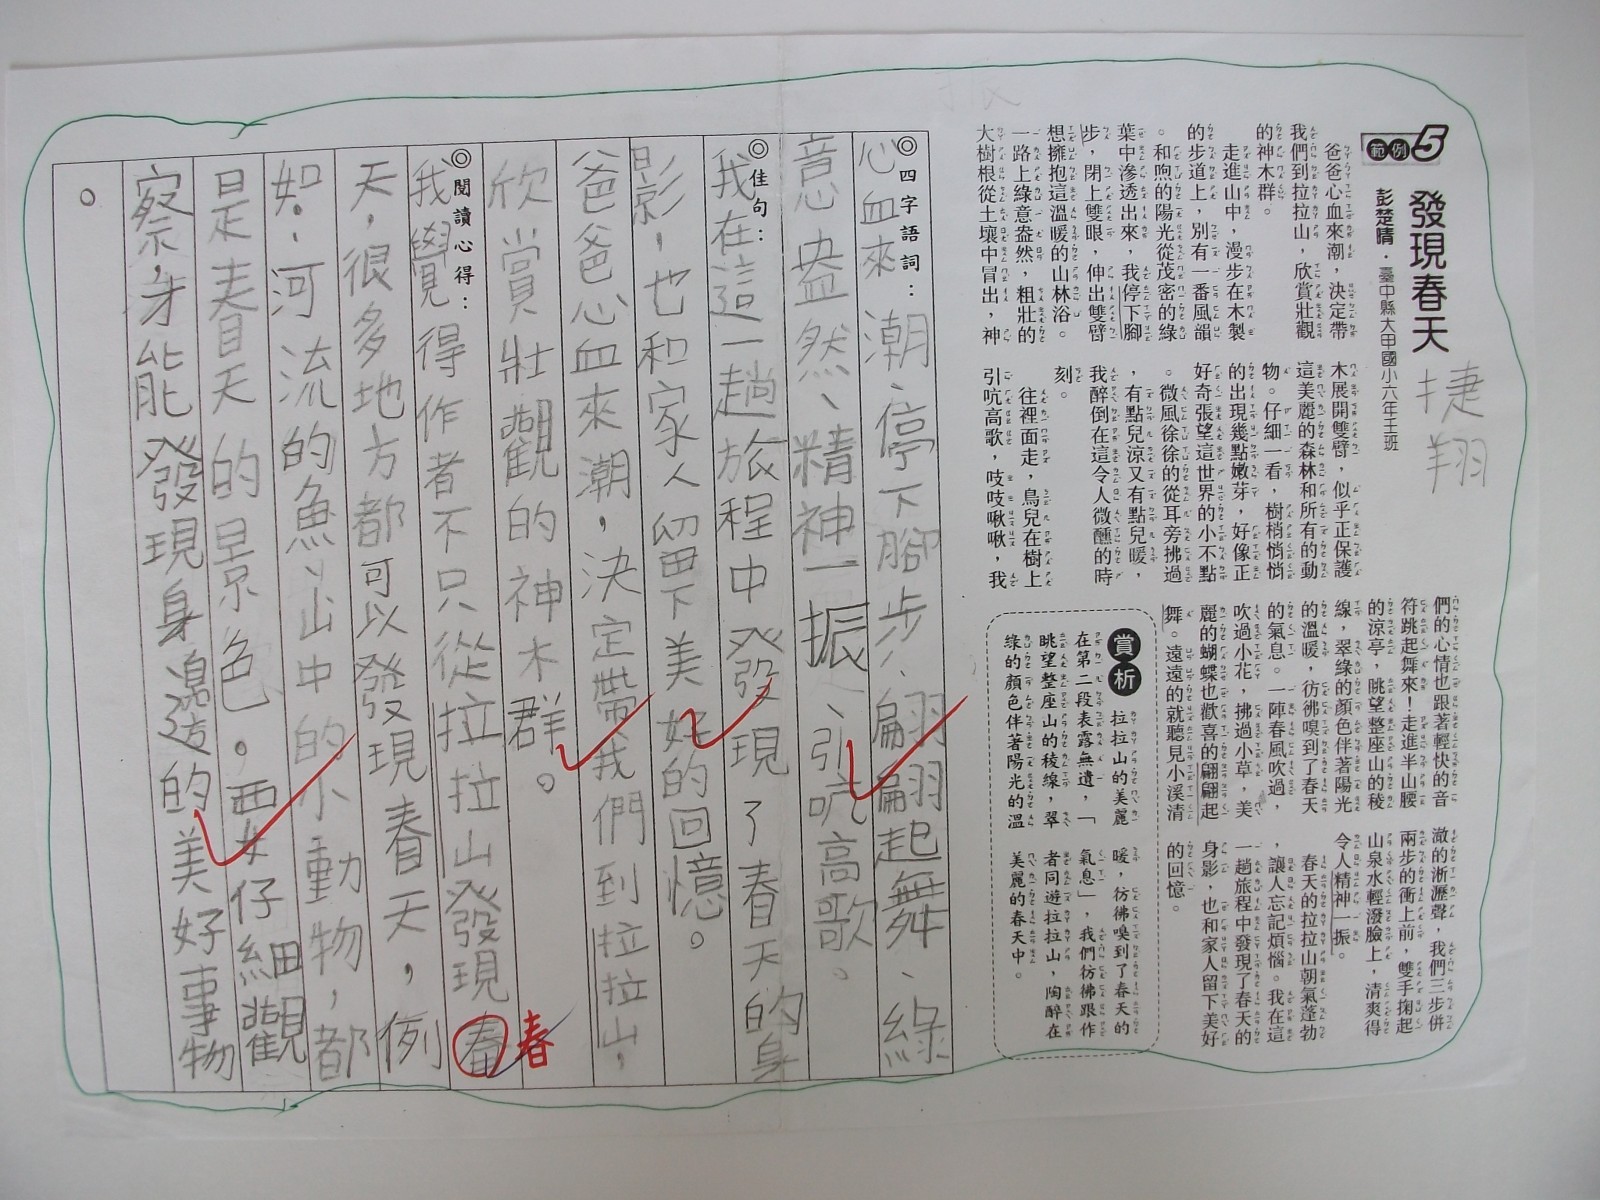 範例5
發現春天
彭楚晴・臺中縣大甲國小六年士班
捷翔
爸爸心血來潮，決定帶
我們到拉拉山，欣賞壯觀
的神木群。
走進山中，漫步在木製
的步道上，別有一番風韻
。和煦的陽光從茂密的綠
葉中滲透出來，我停下腳
步，閉上雙眼，伸出雙臂
想擁抱這溫暖的山林浴。
一路上綠意盎然，粗壯的
大樹根從土壤中冒出，神
木展開雙臂，似乎正保護
這美麗的森林和所有的動
物。仔細一看，樹梢悄悄
的出現幾點嫩芽，好像正
好奇張望這世界的小不點
。微風徐徐的從耳旁拂過
，有點兒涼又有點兒暖，
我醉倒在這令人微醺的時
刻。
往裡面走，鳥兒在樹上
引吭高歌，吱吱啾啾，我
們的心情也跟著輕快的音
符跳起舞來！走進半山腰
的涼亭，眺望整座山的稜
線，翠綠的顏色伴著陽光
的溫暖，彷彿嗅到了春天
的氣息。一陣春風吹過，
吹過小花，拂過小草，美
麗的蝴蝶也歡喜的翩翩起
舞。遠遠的就聽見小溪清
澈的淅瀝聲，我們三步併
兩步的衝上前，雙手掬起
山泉水輕潑臉上，清爽得
令人精神一振。
春天的拉拉山朝氣蓬勃
，讓人忘記煩惱。我在這
一趟旅程中發現了春天的
身影，也和家人留下美好
的回憶。
賞析
拉拉山的美麗
在第二段表露無遺，「
眺望整座山的稜線，翠
綠的顏色伴著陽光的溫
暖，彷彿嗅到了春天的
氣息」，我們彷彿跟作
者同遊拉拉山，陶醉在
美麗的春天中。
◎四字語詞：
心血來潮、停下腳步、翩翩起舞、綠
意盎然、精神一振、引吭高歌。
◎佳句：
我在這一趟旅程中發現了春天的身
影，也和家人留下美好的回憶。
爸爸心血來潮，決定帶我們到拉拉山，
欣賞壯觀的神木群。
◎閱讀心得：
我覺得作者不只從拉拉山發現春
春
天，很多地方都可以發現春天，例
如：河流的魚、山中的小動物，都
是春天的景色。要仔細觀
察，才能發現身邊的美好事物
。